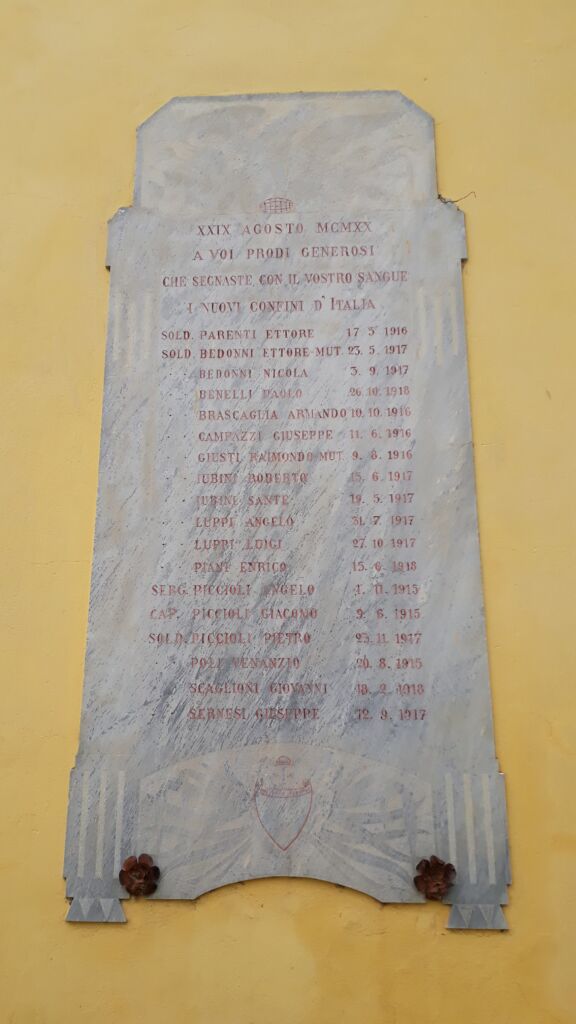 XXIX AGOSTO MCMXX
A VOI PRODI GENEROSI
CHE SEGNASTE, CON IL VOSTRO SANGUE
I NUOVI CONFINI D'ITALIA
SOLD. PARENTI ETTORE 17 3 1916
SOLD. BEDONNI ETTORE MUT. 23. 5. 1917
BEDONNI NICOLA 3. 9. 1917
BENELLI PAOLO 26. 10. 1918
BRASCAGLIA ARMANDO 10. 10. 1916
CAMPAZZI GIUSEPPE 11. 6. 1916
GIUSTI RAIMONDO MUT. 9. 8. 1916
IUBINI ROBERTO 15. 6. 1917
IUBINI SANTE 19. 5. 1917
LUPPI ANGELO 31. 7. 1917
LUPPI LUIGI 27. 10 1917
PIANI ENRICO 15. 6. 1918
SERG. PICCIOLI ANGELO 1. 11. 1915
CAP. PICCIOLI GIACOMO 9. 6. 1915
SOLD. PICCIOLI PIETRO 23. 11. 1917
POLI VENANZIO 20. 8. 1915
SCAGLIONI GIOVANNI 18. 2. 1918
SERNESI GIUSEPPE 12. 9. 1917